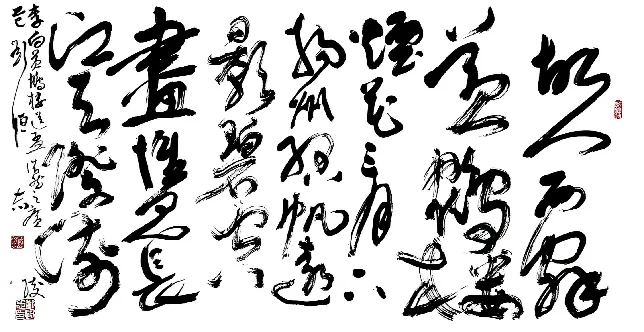 故人西辞
黄鹤楼
煙花三月下
扬州孤帆遠
影碧空
盡惟見長
江天際流
李白黄鹤楼送孟浩然之廣
陵